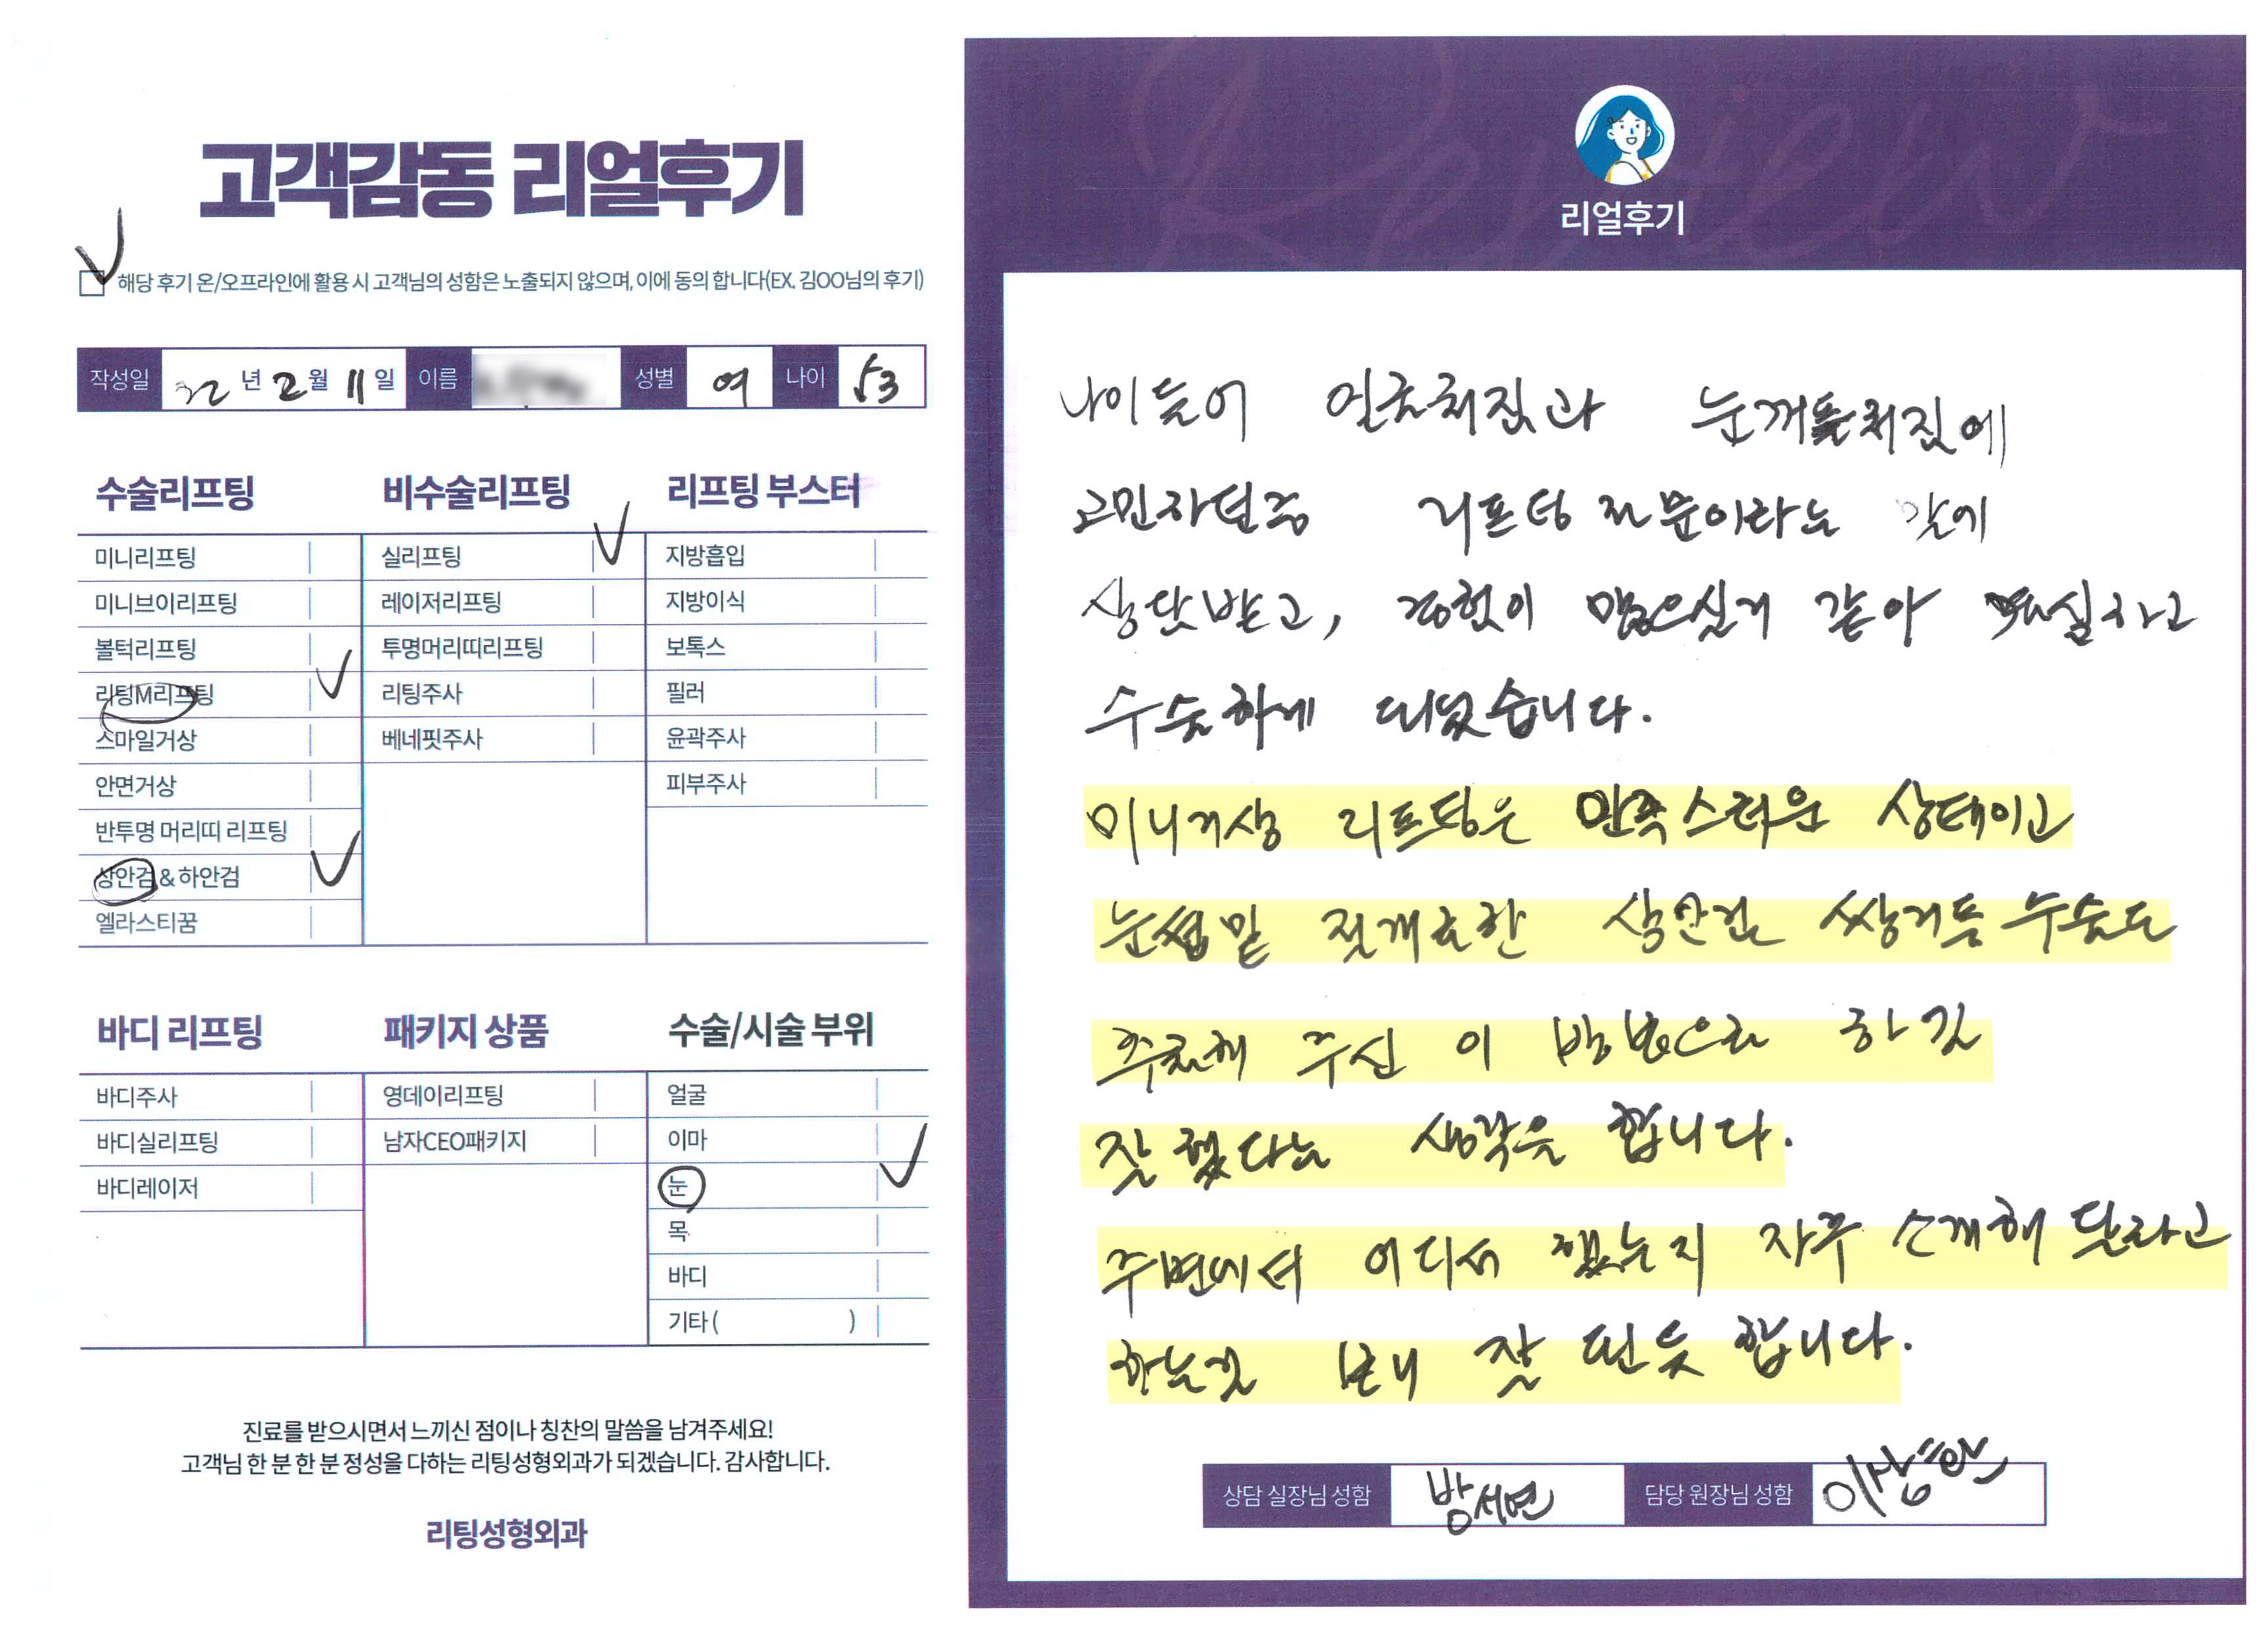 고객감동 리얼후기
해당 후기 온/오프라인에 활용 시 고객님의 성함은 노출되지 않으며, 이에 동의 합니다(EX. 김OO님의 후기)
작성일 22년 2월 11일 이름 성별 여 나이 53
수술리프팅
미니리프팅
미니브이리프팅
볼턱리프팅
리팅M리프팅
스마일거상
안면거상
반투명 머리띠 리프팅
상안검 & 하안검
엘라스티꿈
비수술리프팅
실리프팅
레이저리프팅
투명머리띠리프팅
리팅주사
베네핏주사
리프팅 부스터
지방흡입
지방이식
보톡스
필러
윤곽주사
피부주사
바디 리프팅
바디주사
바디실리프팅
바디레이저
패키지 상품
영데이리프팅
남자CEO패키지
수술/시술 부위
얼굴
이마
눈
목
바디
기타 ( )
진료를 받으시면서 느끼신 점이나 칭찬의 말씀을 남겨주세요!
고객님 한 분 한 분 정성을 다하는 리팅성형외과가 되겠습니다. 감사합니다.
리팅성형외과
Review
리얼후기
나이들어 얼굴처짐과 눈꺼풀처짐에
고민하던중 리프팅 전문이라는 말에
상담받고, 경험이 많으실거 같아 확실하고
수술하게 되었습니다.
미니거상 리프팅은 만족스러운 상태이고
눈썹밑 절개로한 상안검 쌍거풀 수술도
추천해 주신 이 방법으로 하길
잘 했다는 생각을 합니다.
주변에서 어디서 했는지 자주 소개해 달라고
하는걸 보니 잘 된듯 합니다.
상담 실장님 성함 방서연 담당 원장님 성함